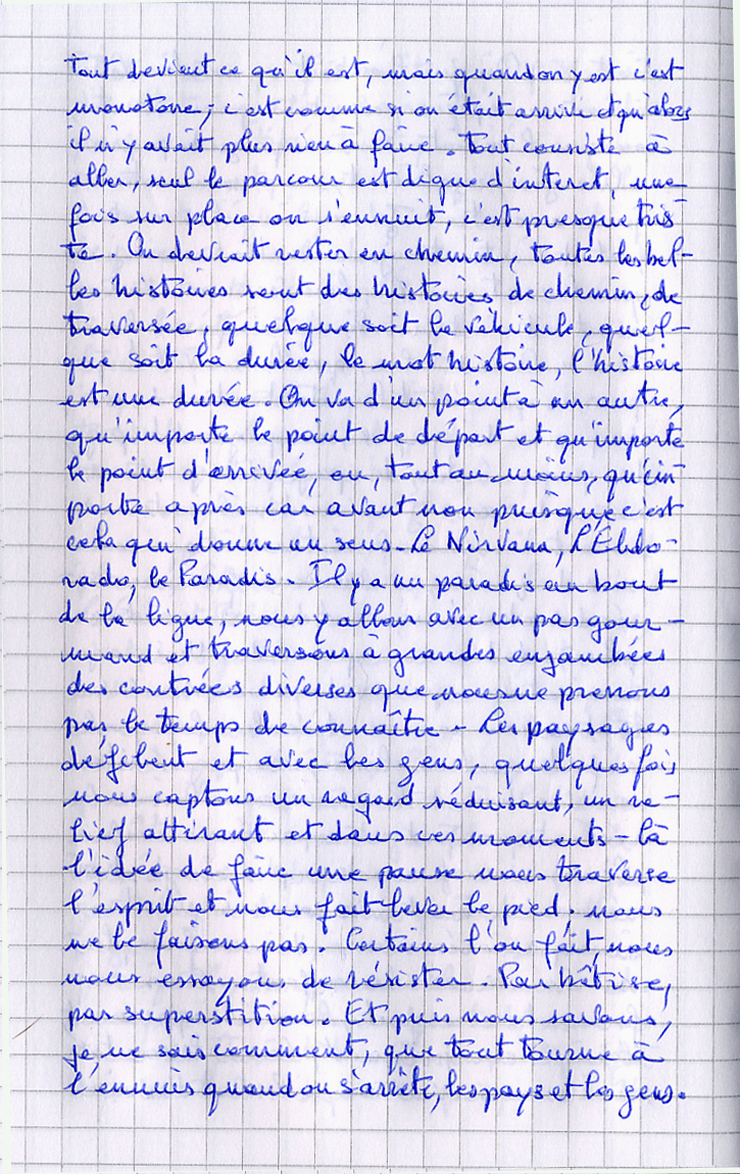 Tout devient ce qu'il est, mais quand on y est c'est
monotone ; c'est comme si on était arrivé et qu'alors
il n'y avait plus rien à faire. Tout consiste à
aller, seul le parcours est digne d'interet, une
fois sur place on s'ennuit, c'est presque tris
te. On devrait rester en chemin, toutes les bel-
les histoires sont des histoires de chemin, de
traversée, quelque soit le véhicule, quel-
que soit la durée, le mot histoire, l'histoire
est une durée. On va d'un point à un autre,
qu'importe le point de départ et qu'importe
le point d'arrivée, ou, tout au moins, qu'im
porte après car avant non puisque c'est
cela qui donne un sens - Le Nirvana, l'Eldo-
rado, le Paradis. Il y a un paradis au bout
de la ligne, nous y allons avec un pas gour-
mand et traversons à grandes enjambées
des contrées diverses que nous ne prenons
pas le temps de connaître - Les paysages
défilent et avec les gens, quelques fois
nous captons un regard séduisant, un re-
lief attirant et dans ces moments-là
l'idée de faire une pause nous traverse
l'esprit et nous fait lever le pied. nous
ne le faisons pas. Certains l'on fait, nous
nous essayons de résister. Par bêtise,
par superstition. Et puis nous savons,
je ne sais comment, que tout tourne à
l'ennuis quand on s'arrête, les pays et les gens.